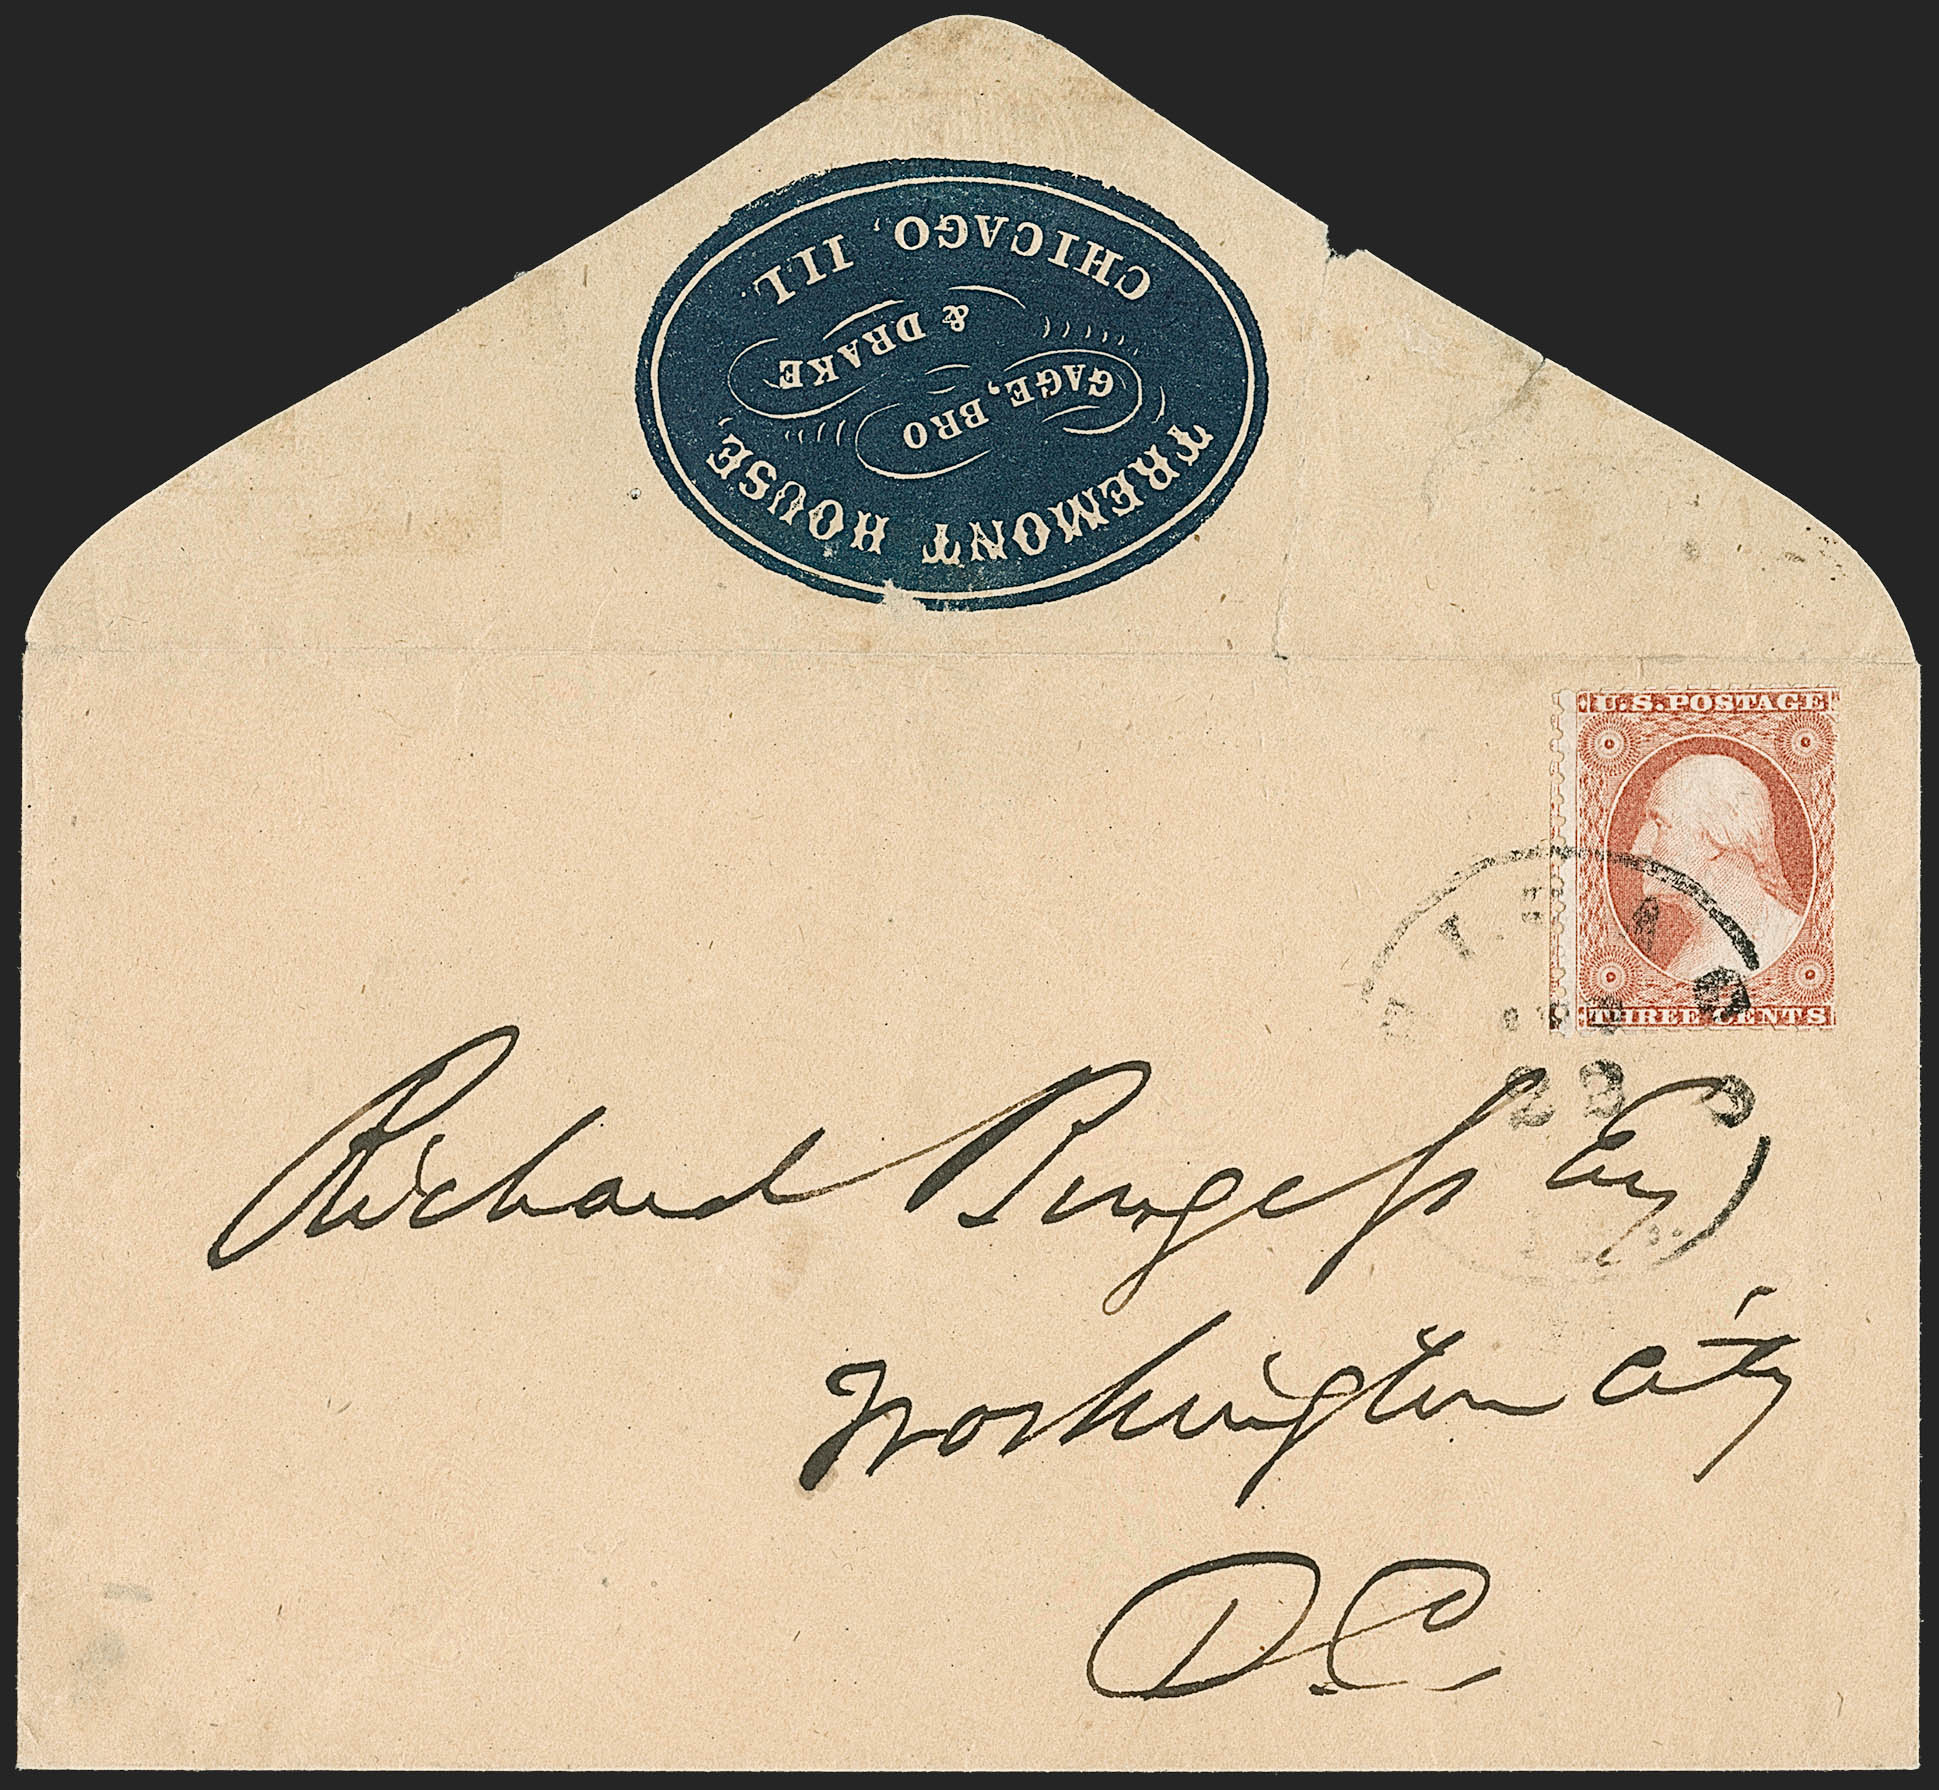 TREMONT HOUSE,
GAGE, BRO
& DRAKE
CHICAGO, ILL.
U.S. POSTAGE
THREE CENTS
23
Richard Burgess Esq
Washington City
D.C.